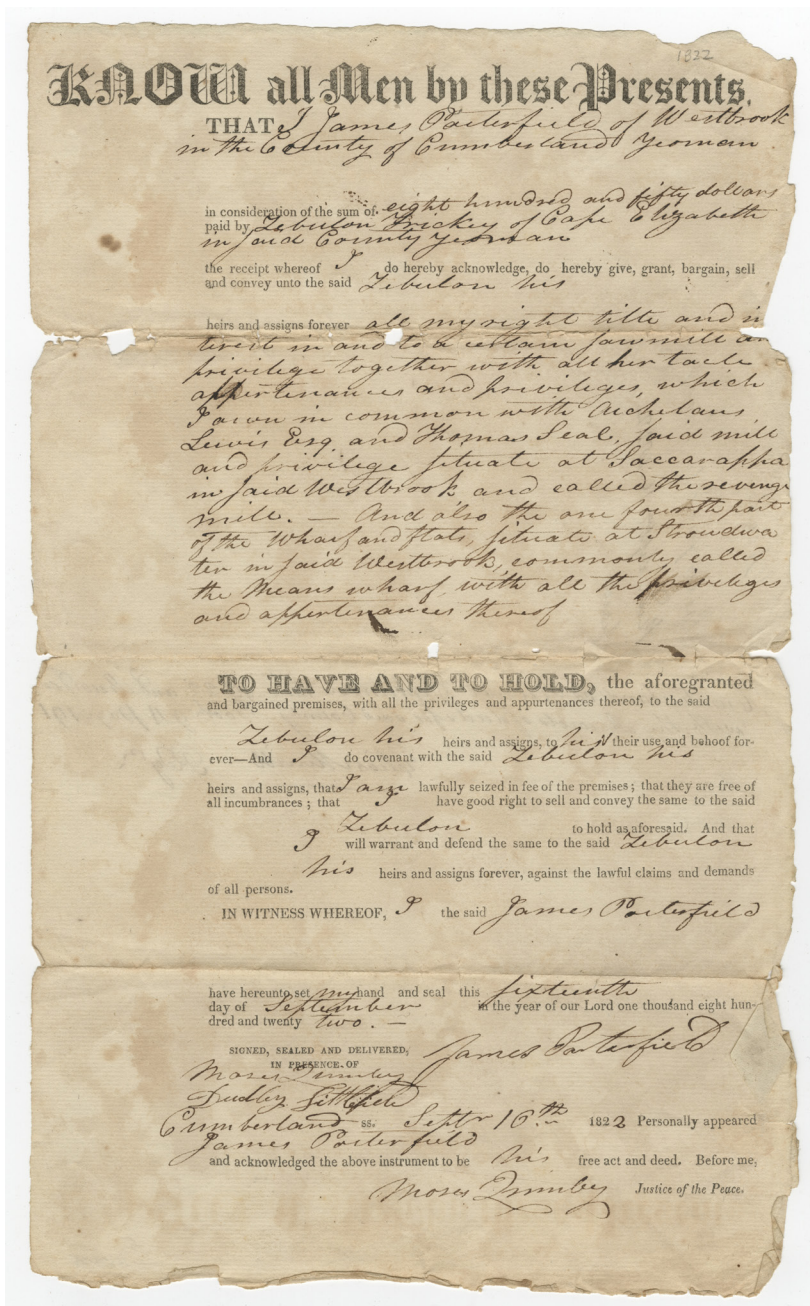 1822
KNOW all Men by these Presents,
THAT I James Porterfield of Westbrook
in the County of Cumberland Yeoman
in consideration of the sum of eight hundred and fifty dollars
paid by Zebulon Trickey of Cape Elizabeth
in said County Yeoman
the receipt whereof I do hereby acknowledge, do hereby give, grant, bargain, sell
and convey unto the said Zebulon his
heirs and assigns forever all my right title and in
terest in and to a certain sawmill an
priviledge together with all her tacle
appertenances and privileges, which
I own in common with Archelaus
Lewis Esq and Thomas Seal, said mill
and privilege situate at Saccarappa
in said Westbrook and called the revenge
mill. — And also the one fourth part
of the Wharf and flats, situate at Stroudwa
ter in said Westbrook, commonly called
the Means wharf, with all the privileges
and appertenances thereof
TO HAVE AND TO HOLD, the aforegranted
and bargained premises, with all the privileges and appurtenances thereof, to the said
Zebulon his heirs and assigns, to his their use and behoof for-
ever—And I do covenant with the said Zebulon his
heirs and assigns, that I am lawfully seized in fee of the premises; that they are free of
all incumbrances; that I have good right to sell and convey the same to the said
Zebulon to hold as aforesaid. And that
I will warrant and defend the same to the said Zebulon
his heirs and assigns forever, against the lawful claims and demands
of all persons.
IN WITNESS WHEREOF, I the said James Porterfield
have hereunto set my hand and seal this sixteenth
day of September in the year of our Lord one thousand eight hun-
dred and twenty two. —
SIGNED, SEALED AND DELIVERED, James Porterfield
IN PRESENCE OF
Moses Quinby
Dudley Littlefield
Cumberland ss. Septr 16th 1822 Personally appeared
James Porterfield
and acknowledged the above instrument to be his free act and deed. Before me,
Moses Quinby Justice of the Peace.